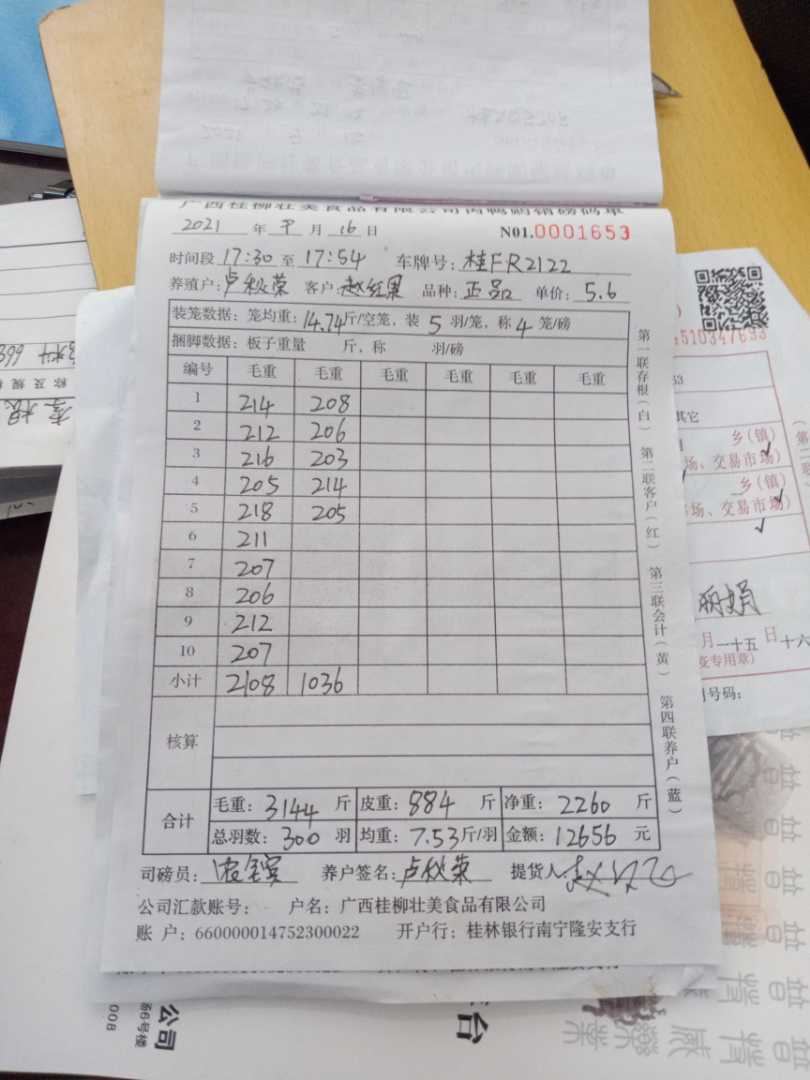 广西桂柳壮美食品有限公司肉鸭鹅销磅码单
2021 年 7 月 16 日 N01.0001653
时间段 17:30 至 17:54 车牌号: 桂FR2122
养殖户: 卢秋荣 客户: 赵红果 品种: 正品 单价: 5.6
装笼数据: 笼均重: 14.74 斤/空笼, 装 5 羽/笼, 称 4 笼/磅
捆脚数据: 板子重量 斤, 称 羽/磅
编号 毛重 毛重 毛重 毛重 毛重 毛重
1 214 208
2 212 206
3 216 203
4 205 214
5 218 205
6 211
7 207
8 206
9 212
10 207
小计 2108 1036
核算
合计
毛重: 3144 斤 皮重: 884 斤 净重: 2260 斤
总羽数: 300 羽 均重: 7.53 斤/羽 金额: 12656 元
司磅员: 养户签名: 卢秋荣 提货人:
公司汇款账号: 户名: 广西桂柳壮美食品有限公司
账 户: 660000014752300022 开户行: 桂林银行南宁隆安支行
第一联存根(白) 第二联客户(红) 第三联会计(黄) 第四联养户(蓝)
510347693
其它
乡(镇)
场、交易市场)
乡(镇)
场、交易市场)
月一十五日十六
专用章)
号码:
公司
6号楼
008
台